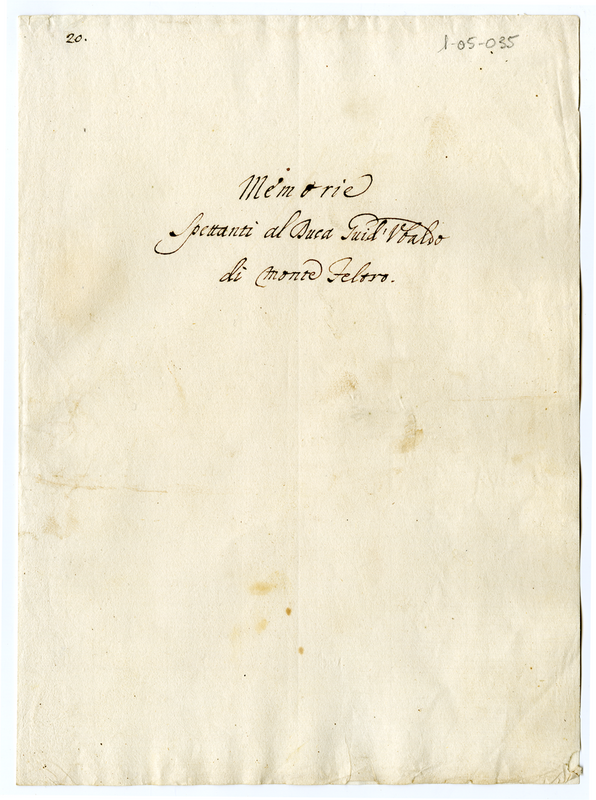 20.
1-05-035
Memorie
Spettanti al Duca Guid' Vbaldo
di monte Feltro.